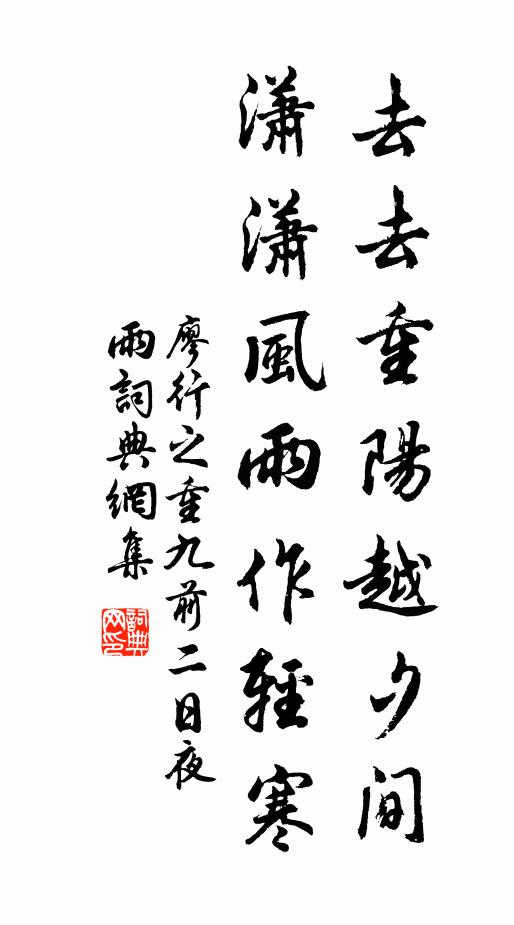 去去重陽越夕間
瀟瀟風雨作輕寒
廖行之重九前二日夜
雨詞典網集
詞典
网印